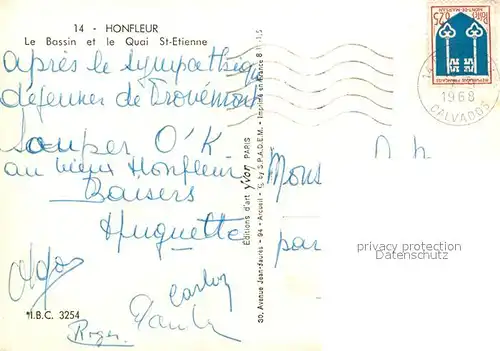 14 - HONFLEUR
Le Bassin et le Quai St-Etienne
après le sympathique
déjeuner de Trouémont
souper O'K
au vieux Honfleur
Baisers
Huguette
Olga
Carlos
Roger
H.B.C. 3254
Editions d'art yvon PARIS
30, Avenue Jean-Jaurès - 94 - Arcueil - © by S.P.A.D.E.M. - Imprimé en France
Mons
par
1968
CALVADOS
REPUBLIQUE FRANÇAISE
MONT-DE-MARSAN
0,25
POSTES
privacy protection
Datenschutz